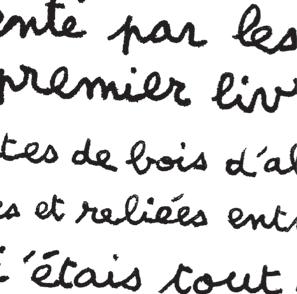 enté par les
premier liv
tes de bois d'al
s et reliées ent
'étais tout